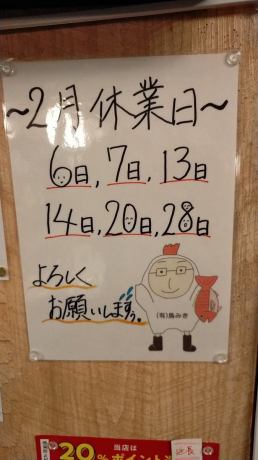 ~2月休業日~
6日, 7日, 13日
14日, 20日, 28日
よろしく
お願いします。
(有)鳥みき
当店は
20%ポイント
延長